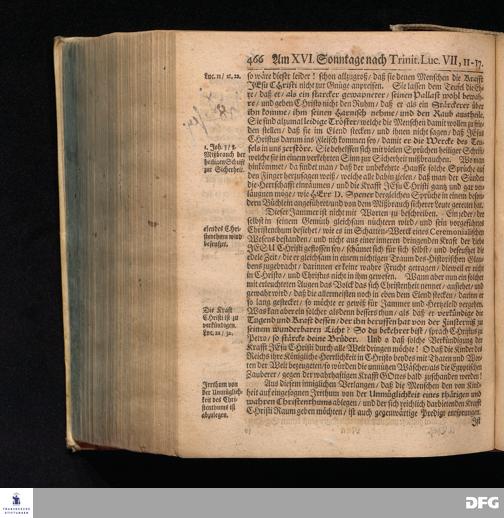 466 Am XVI. Sonntage nach Trinit. Luc. VII, 11-17.
Luc. 11/ 21. 22.
so wäre diesfer leider! schon allzugroß/ daß sie denen Menschen die Krafft
JEsu CHristi nicht zur Gnüge anpreisen. Sie lassen dem Teufel die Eh-
re/ daß er/ als ein starcker gewapneter/ seinen Pallast wohl bewah-
re/ und geben Christo nicht den Ruhm/ daß er als ein Stärckerer über
ihn komme/ ihm seinen Harnisch nehme/ und den Raub austheile.
Sie sind allzumal leidige Tröster/ welche die Menschen damit wollen zu frie-
den stellen/ daß sie im Elend stecken/ und ihnen nicht sagen/ daß JEsus
1. Joh. 3/ 8.
Christus darum ins Fleisch kommen sey/ damit er die Wercke des Teu-
Mißbrauch der
fels in uns zerstöre. Sie behelffen sich mit vielen Sprüchen heiliger Schrift/
heiligen Schrift
welche sie in einem verkehrten Sinn zur Sicherheit mißbrauchen. Wo man
zur Sicherheit.
hinkömmet/ da findet man/ daß der unbekehrte Hauffe solche Sprüche auf
den Finger herzusagen weiß/ welche alle dahin zielen/ daß man der Sünden
die Herrschafft einräumen/ und die Krafft JEsu Christi gantz und gar ver-
läugnen möge/ wie HErr D. Spener dergleichen Sprüche in einem besondern
Büchlein angeführet/ und von dem Mißbrauch sicherer Leute gerettet hat.
Dieser Jammer ist nicht mit Worten zu beschreiben. Ein jeder/ der
selbst in seinem Gemüth gleichsam nüchtern wird/ und sein vorgeführtes
elendes Chri-
Christenthum besiehet/ wie es im Schatten-Werck eines Ceremonialischen
stenthum wird
Wesens bestanden/ und nicht aus einer inneren dringenden Kraft der Liebe
beseufzet.
JESU Christi geflossen sey/ schämet sich für sich selbst/ und beseufzet die
edele Zeit/ die er gleichsam in einem nichtigen Traum des Historischen Glau-
bens zugebracht/ darinnen er keine wahre Frucht getragen/ dieweil er nicht
in Christo/ und Christus nicht in ihm gewesen. Wann aber nun ein solcher
mit erleuchteten Augen das Volck das sich Christenheit nennet/ ansiehet/ und
gewahr wird/ daß die allermeisten noch in eben dem Elend stecken/ darin er
so lang gestecket/ so möchte er gewiß für Jammer und Hertzeleid vergehen.
Die Kraft
Was kan aber ein solcher alsdenn bessers thun/ als daß er verkündige die
CHristi ist zu
Tugend und Kraft dessen/ der ihn beruffen hat von der Finsterniß zu
verkündigen.
seinem wunderbaren Licht? So du bekehret bist/ sprach Christus zu
Luc. 22/ 32.
Petro/ so stärcke deine Brüder. Und o daß solche Verkündigung der
Krafft JEsu CHristi durch alle Welt dringen möchte! O daß die Kinder des
Reichs ihre Königliche Herrlichkeit in CHristo beydes mit Thaten und Wor-
ten der Welt bezeugeten/ so würden die unnützen Wäscher/ als die Egyptischen
Zauberer/ gegen der wahrhaftigen Krafft GOttes bald zuschanden werden!
Irrthum von
Aus diesem inniglichen Verlangen/ daß die Menschen den von Kind-
der Unmöglich-
heit auf eingesognen Irrthum von der Unmüglichkeit eines thätigen und
keit des Chri-
wahren Christenthums ablegen/ und der sich reichlich darbietenden Kraft
stenthums ist
CHristi Raum geben möchten/ ist auch gegenwärtige Predigt entsprungen.
abzulegen.
Ist
FRANCKESCHE
STIFTUNGEN
DFG